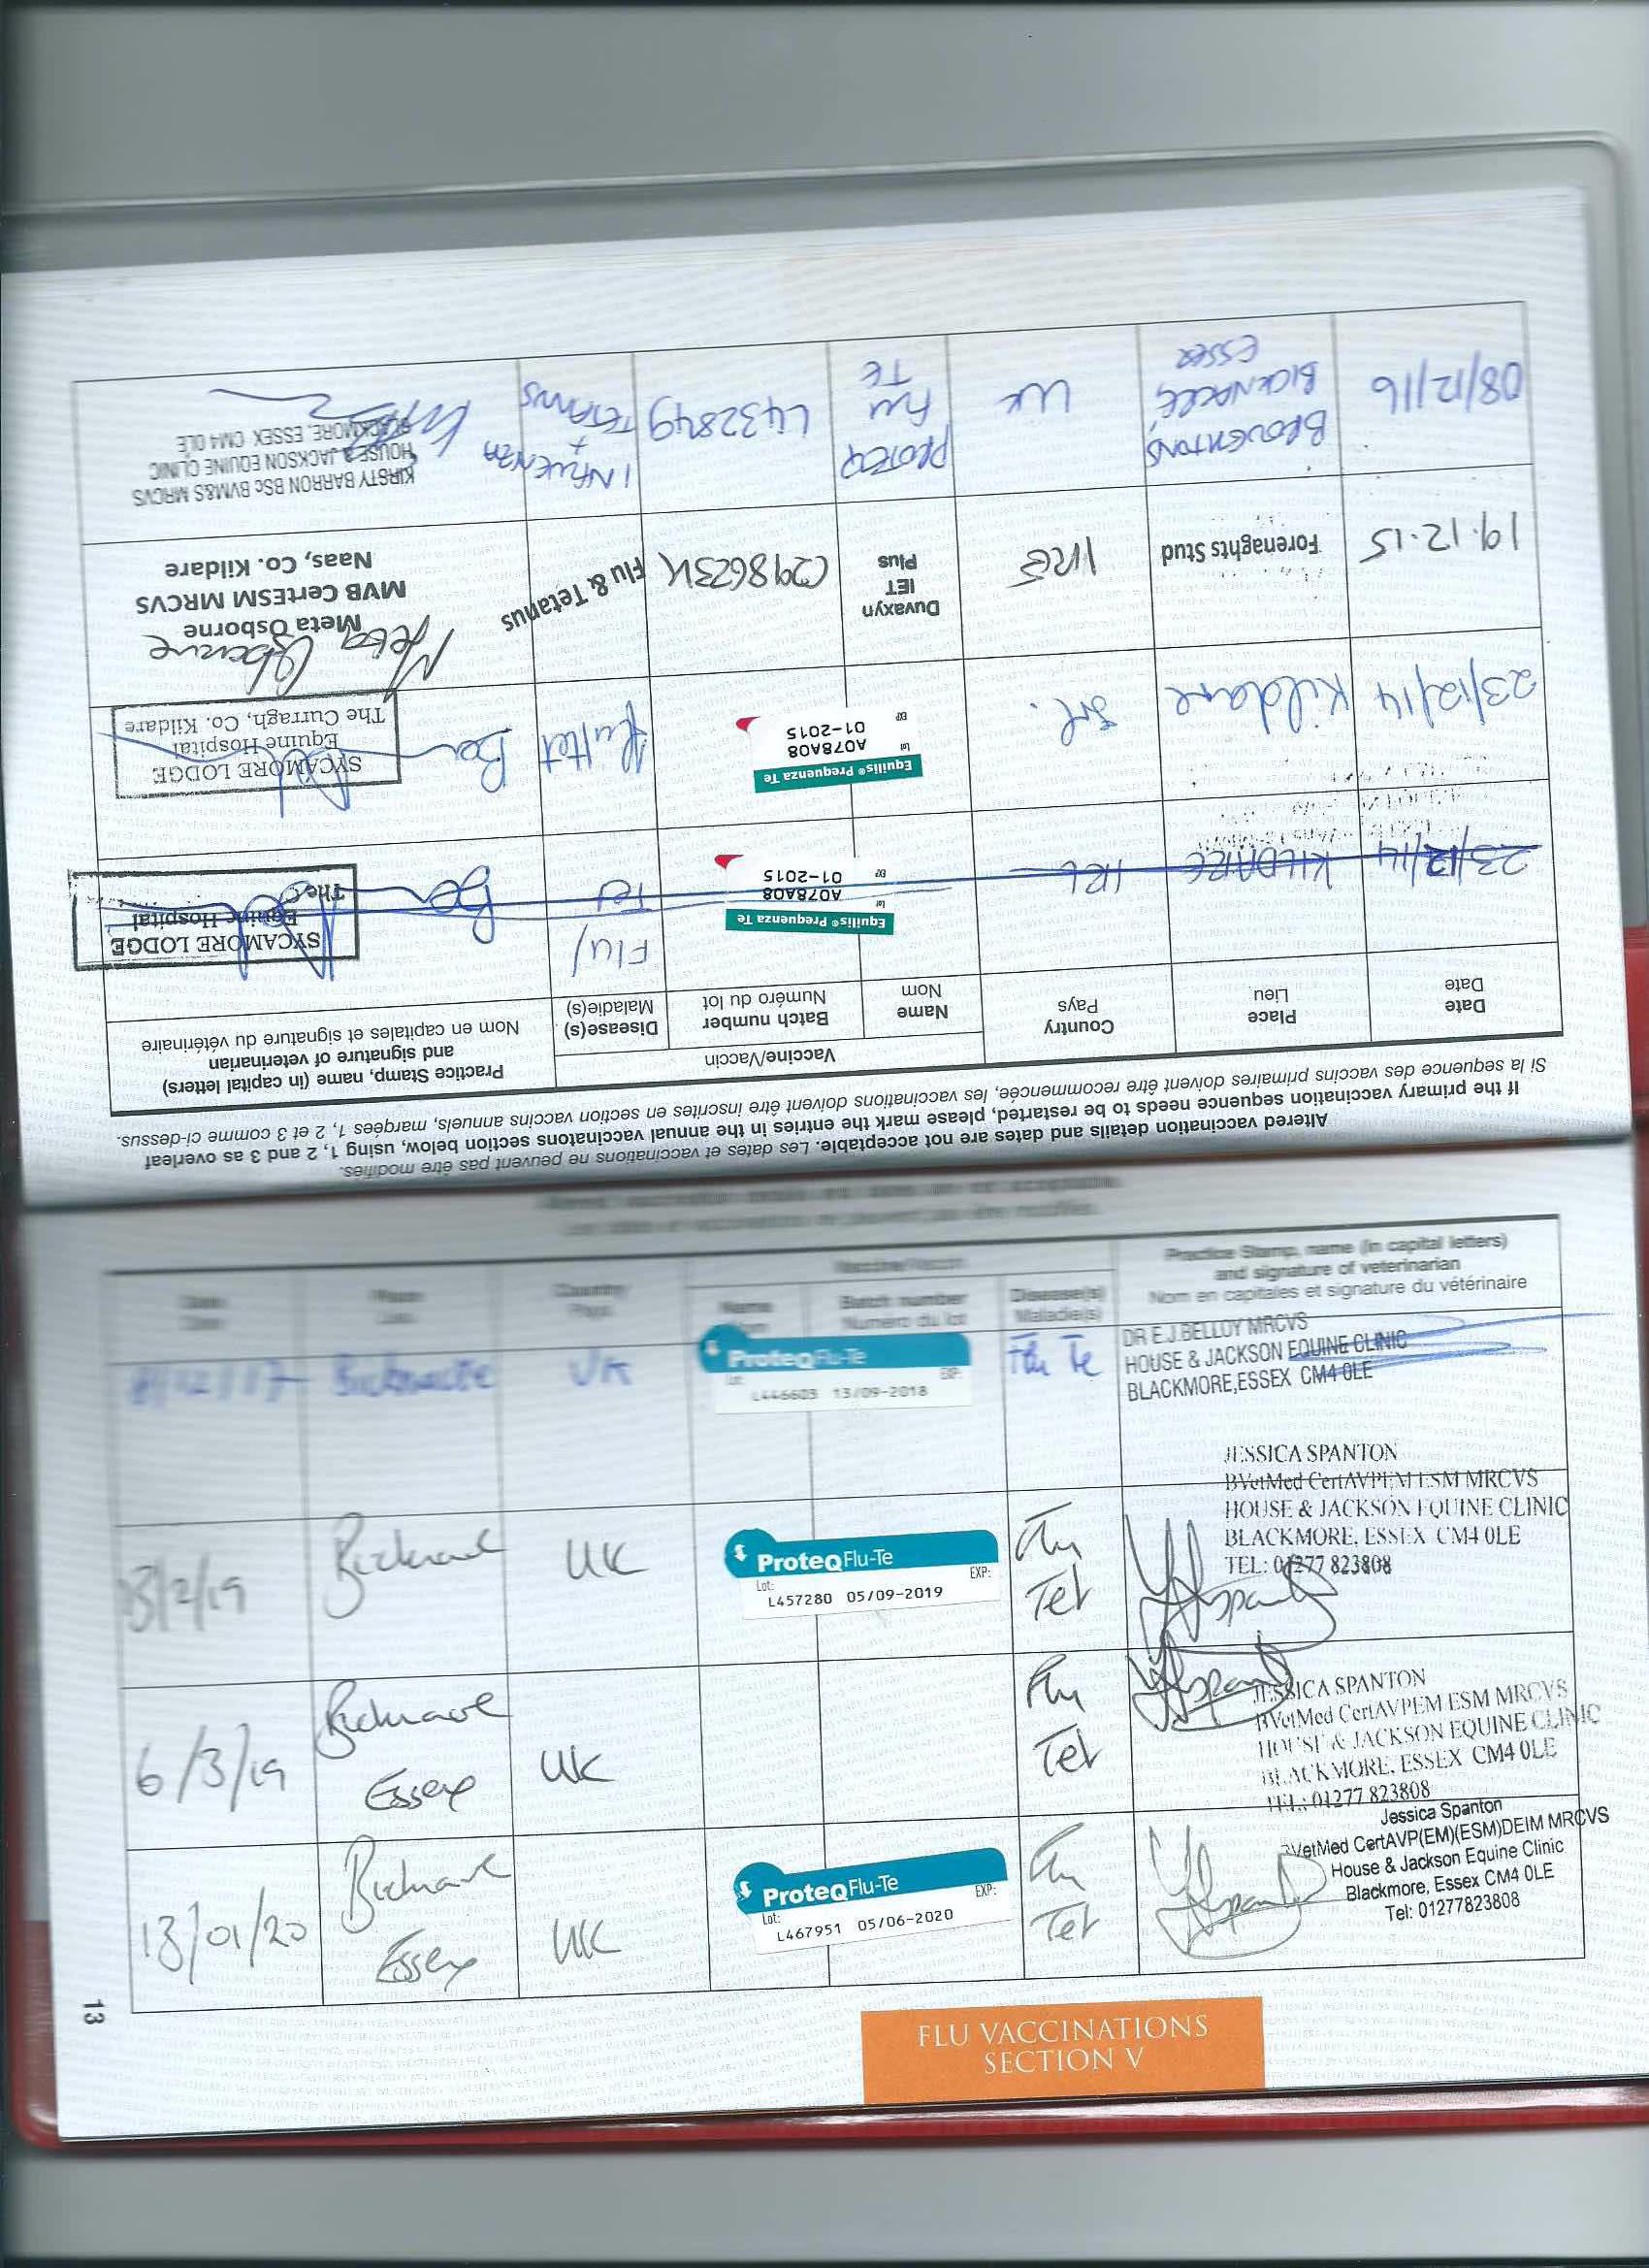 Altered vaccination details and dates are not acceptable. Les dates et vaccinations ne peuvent pas être modifiés.
If the primary vaccination sequence needs to be restarted, please mark the entries in the annual vaccinatons section below, using 1, 2 and 3 as overleaf
Si la sequence des vaccins primaires doivent être recommencée, les vaccinations doivent être inscrites en section vaccins annuels, marqées 1, 2 et 3 comme ci-dessus.
Date
Date
Place
Lieu
Country
Pays
Vaccine/Vaccin
Name
Nom
Batch number
Numéro du lot
Disease(s)
Maladie(s)
Practice Stamp, name (in capital letters)
and signature of veterinarian
Nom en capitales et signature du vétérinaire
23/12/14
KILDARE
IRL
Equilis® Prequenza Te
Lot
A078A08
EXP
01-2015
Flu/
Tet
SYCAMORE LODGE
Equine Hospital
The C
23/12/14
Kildare
Irl.
Equilis® Prequenza Te
Lot
A078A08
EXP
01-2015
SYCAMORE LODGE
Equine Hospital
The Curragh, Co. Kildare
19.12.15
Forenaghts Stud
IRE
Duvaxyn
IET
Plus
C298623K
Flu & Tetanus
Meta Osborne
Meta Osborne
MVB CertESM MRCVS
Naas, Co. Kildare
08/12/16
BROUGHTONS
BICKNACRE,
ESSEX
UK
PROTEQ
FLU
TE
L432849
INFLUENZA
+
TETANUS
KIRSTY BARRON BSc BVM&S MRCVS
HOUSE & JACKSON EQUINE CLINIC
BLACKMORE, ESSEX CM4 0LE
Vaccine/Vaccin
Country
Pays
Batch number
Numéro du lot
Disease(s)
Maladie(s)
Practice Stamp, name (in capital letters)
and signature of veterinarian
Nom en capitales et signature du vétérinaire
Bicknacre
UK
ProteqFlu-Te
Lot:
EXP:
L446603 13/09-2018
Flu Te
DR E.J.BELLOY MRCVS
HOUSE & JACKSON EQUINE CLINIC
BLACKMORE,ESSEX CM4 0LE
Bicknacre
UK
ProteqFlu-Te
Lot:
EXP:
L457280 05/09-2019
Flu
Tet
JESSICA SPANTON
BVetMed CertAVPEM ESM MRCVS
HOUSE & JACKSON EQUINE CLINIC
BLACKMORE, ESSEX CM4 0LE
TEL: 01277 823808
6/3/19
Bicknacre
Essex
UK
Flu
Tet
JESSICA SPANTON
BVetMed CertAVPEM ESM MRCVS
HOUSE & JACKSON EQUINE CLINIC
BLACKMORE, ESSEX CM4 0LE
TEL: 01277 823808
13/01/20
Bicknacre
Essex
UK
ProteqFlu-Te
Lot:
EXP:
L467951 05/06-2020
Flu
Tet
Jessica Spanton
BVetMed CertAVP(EM)(ESM)DEIM MRCVS
House & Jackson Equine Clinic
Blackmore, Essex CM4 0LE
Tel: 01277823808
13
FLU VACCINATIONS
SECTION V